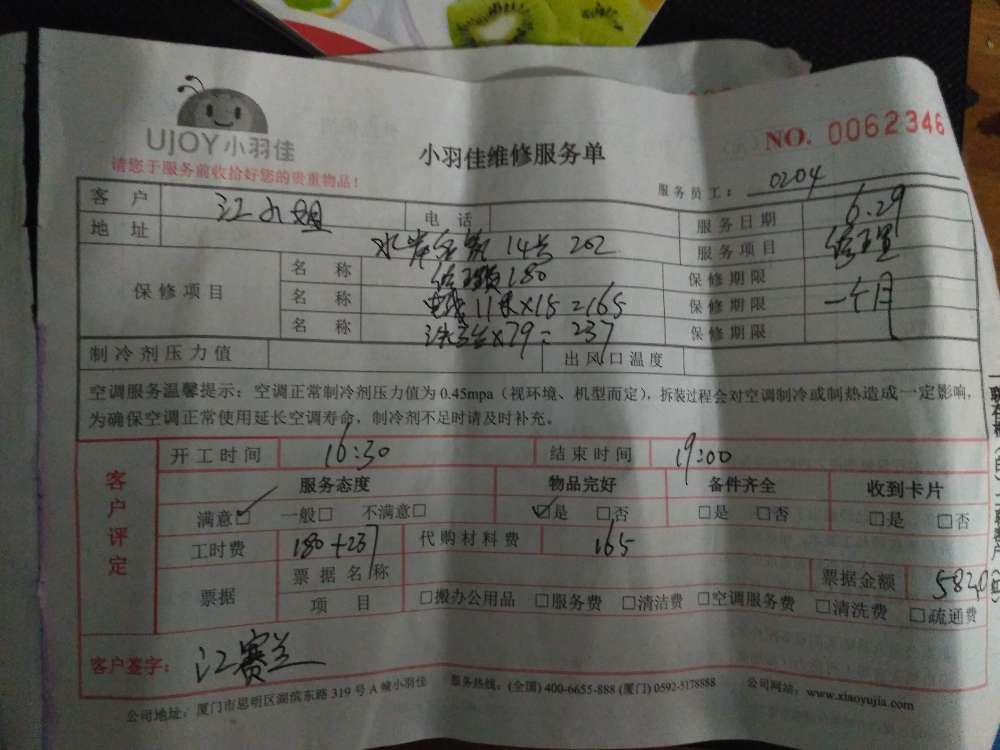 UJOY小羽佳
小羽佳维修服务单
NO. 0062346
请您于服务前收拾好您的贵重物品！
服务员工： 0204
客 户 江小姐 电 话 服务日期 6.29
地 址 14号 202 服务项目 修理
保修项目 名 称 修理费180 保修期限
名 称 电线11米×15=165 保修期限 一个月
名 称 ×79=237 保修期限
制冷剂压力值 出风口温度
空调服务温馨提示：空调正常制冷剂压力值为0.45mpa（视环境、机型而定），拆装过程会对空调制冷或制热造成一定影响，
为确保空调正常使用延长空调寿命，制冷剂不足时请及时补充。
客户评定
开工时间 16:30 结束时间 19:00
服务态度 物品完好 备件齐全 收到卡片
满意☑ 一般□ 不满意□ ☑是 □否 □是 □否 □是 □否
工时费 180+237 代购材料费 165
票据 票据名称 票据金额
项 目 □搬办公用品 □服务费 □清洁费 □空调服务费 □清洗费 □疏通费
客户签字： 江赛兰
公司地址：厦门市思明区湖滨东路319号A幢小羽佳 服务热线：(全国) 400-6655-888 (厦门) 0592-5178888 公司网站：www.xiaoyujia.com